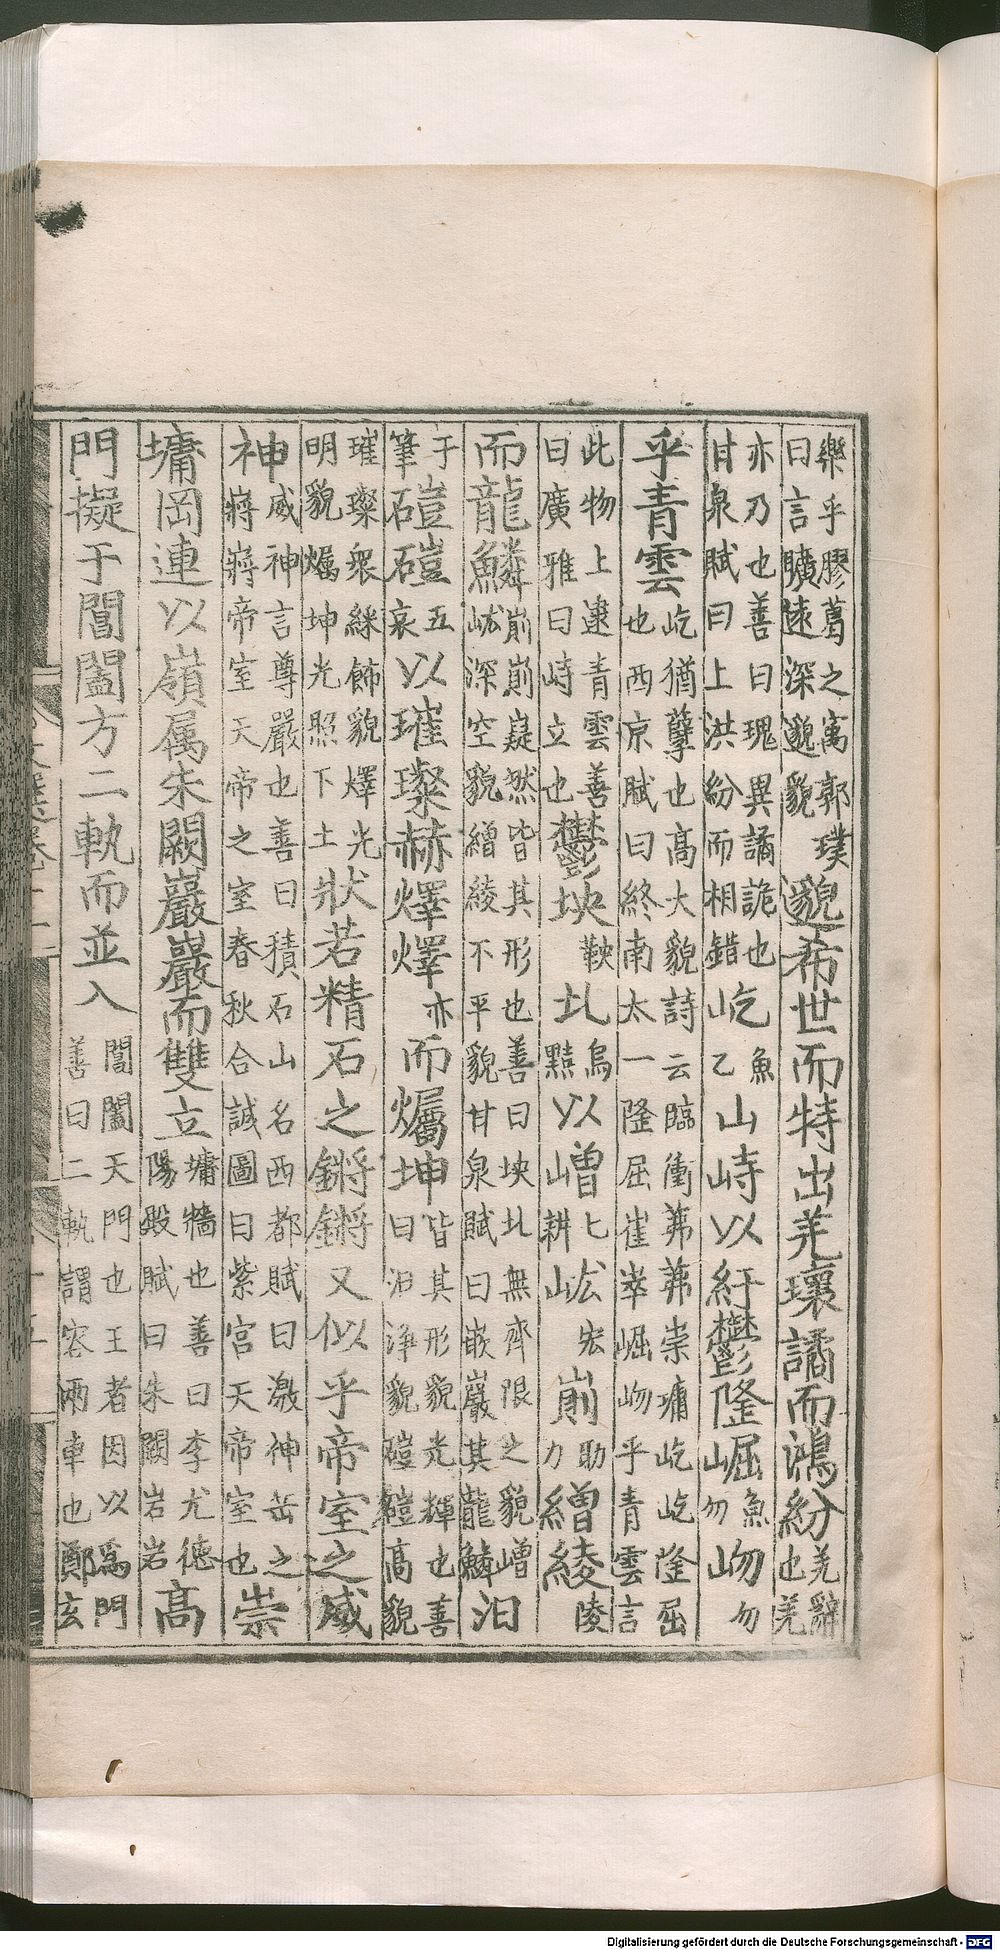 樂乎膠葛之㝢郭璞曰言曠遠深邈貌邈希世而特出羌瓌譎而鴻紛羌辭也羌
亦乃也善曰瑰異譎詭也甘泉賦曰上洪紛而相錯屹魚乙山峙以紆鬱隆崛魚勿岉勿
乎青雲屹猶孽也高大貌詩云臨衝茀茀崇墉屹屹隆屈也西京賦曰終南太一隆屈崔崒崛岉乎青雲言
此物上逮青雲善曰廣雅曰峙立也鬱坱鞅圠烏黠以嶒七耕㟅宏崱助力繒綾陵
而龍鱗崱崱嶷然皆其形也善曰坱圠無齊限之貌嶒㟅深空貌繒綾不平貌甘泉賦曰嵌巖其龍鱗汩
于筆磑磑五哀以璀璨赫燁燁亦而爥坤皆其形貌光輝也善曰汩淨貌磑磑高貌
璀璨衆綵飾貌燁光明貌爥坤光照下土狀若精石之鏘鏘又似乎帝室之威
神威神言尊嚴也善曰積石山名西都賦曰激神岳之嶈嶈帝室天帝之室春秋合誠圖曰紫宮天帝室也崇
墉岡連以嶺属朱闕巖巖而雙立墉牆也善曰李尤德陽殿賦曰朱闕岩岩高
門擬于閶闔方二軌而並入閶闔天門也王者因以爲門善曰二軌謂容兩車也鄭玄
Digitalisierung gefördert durch die Deutsche Forschungsgemeinschaft - DFG